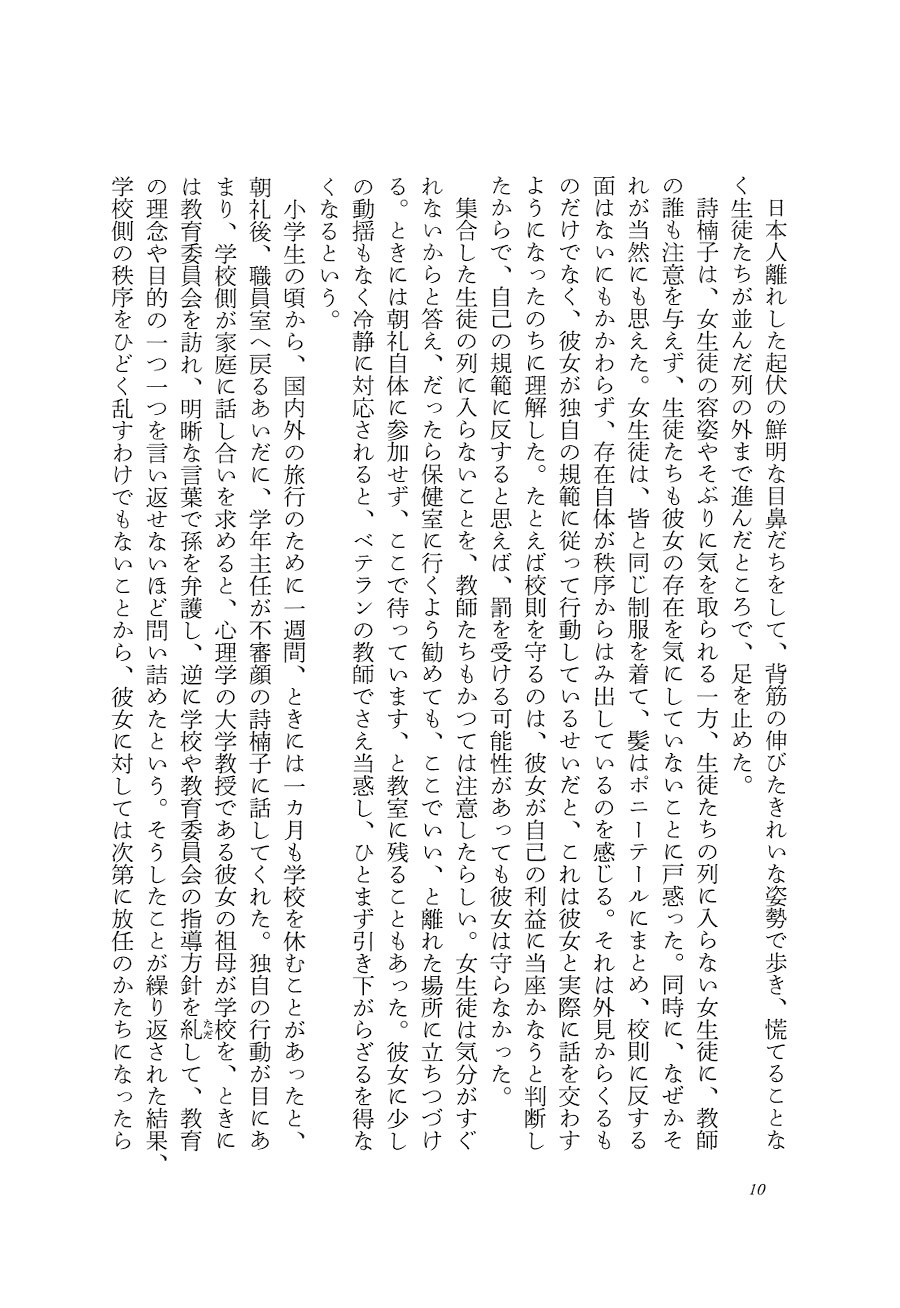 日本人離れした起伏の鮮明な目鼻だちをして、背筋の伸びたきれいな姿勢で歩き、慌てることな
く生徒たちが並んだ列の外まで進んだところで、足を止めた。
詩楠子は、女生徒の容姿やそぶりに気を取られる一方、生徒たちの列に入らない女生徒に、教師
の誰も注意を与えず、生徒たちも彼女の存在を気にしていないことに戸惑った。同時に、なぜかそ
れが当然にも思えた。女生徒は、皆と同じ制服を着て、髪はポニーテールにまとめ、校則に反する
面はないにもかかわらず、存在自体が秩序からはみ出しているのを感じる。それは外見からくるも
のだけでなく、彼女が独自の規範に従って行動しているせいだと、これは彼女と実際に話を交わす
ようになったのちに理解した。たとえば校則を守るのは、彼女が自己の利益に当座かなうと判断し
たからで、自己の規範に反すると思えば、罰を受ける可能性があっても彼女は守らなかった。
集合した生徒の列に入らないことを、教師たちもかつては注意したらしい。女生徒は気分がすぐ
れないからと答え、だったら保健室に行くよう勧めても、ここでいい、と離れた場所に立ちつづけ
る。ときには朝礼自体に参加せず、ここで待っています、と教室に残ることもあった。彼女に少し
の動揺もなく冷静に対応されると、ベテランの教師でさえ当惑し、ひとまず引き下がらざるを得な
くなるという。
小学生の頃から、国内外の旅行のために一週間、ときには一カ月も学校を休むことがあったと、
朝礼後、職員室へ戻るあいだに、学年主任が不審顔の詩楠子に話してくれた。独自の行動が目にあ
まり、学校側が家庭に話し合いを求めると、心理学の大学教授である彼女の祖母が学校を、ときに
は教育委員会を訪れ、明晰な言葉で孫を弁護し、逆に学校や教育委員会の指導方針を糺ただして、教育
の理念や目的の一つ一つを言い返せないほど問い詰めたという。そうしたことが繰り返された結果、
学校側の秩序をひどく乱すわけでもないことから、彼女に対しては次第に放任のかたちになったら
10